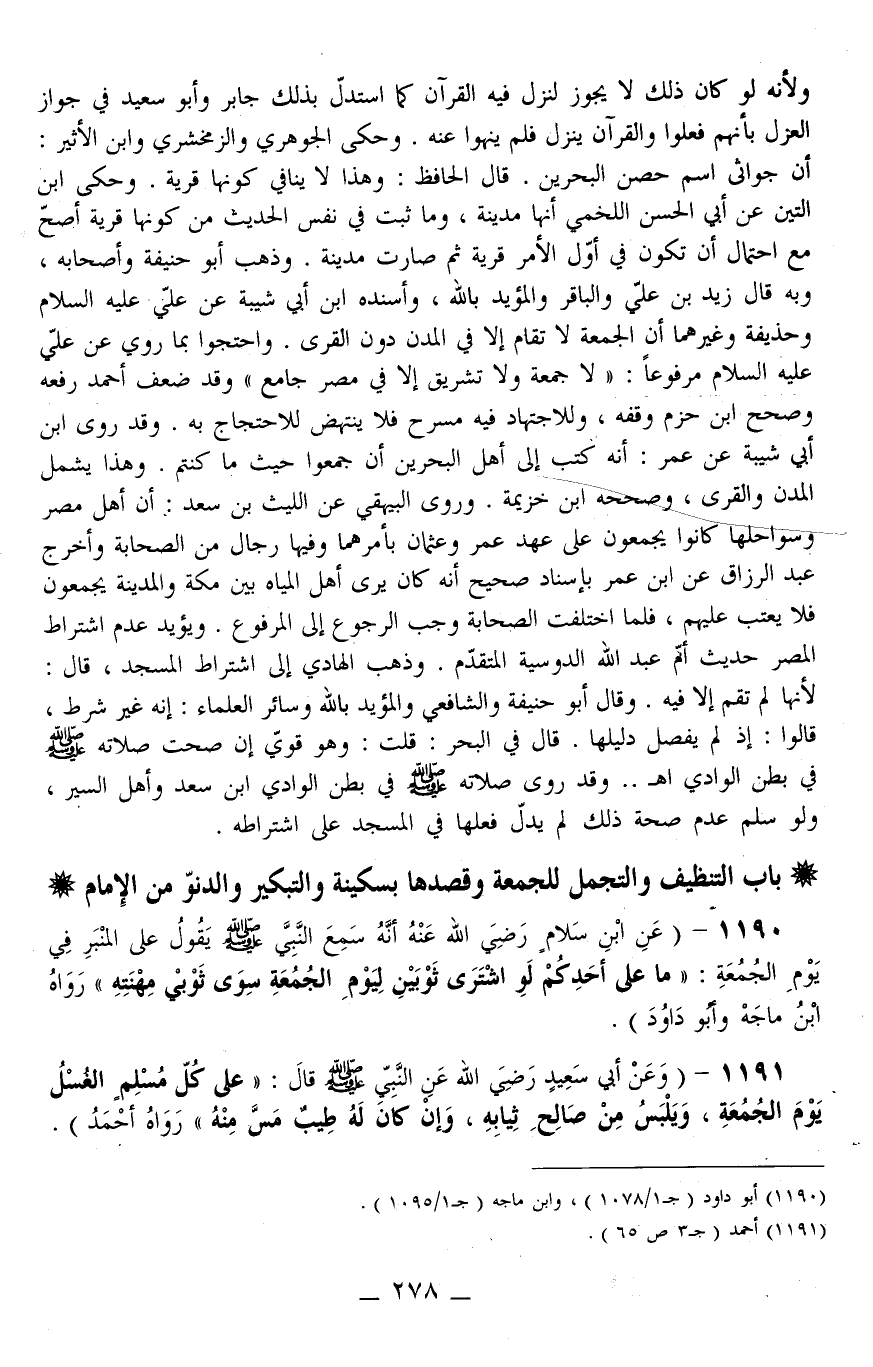 ولأنه لو كان ذلك لا يجوز لنزل فيه القرآن كما استدلّ بذلك جابر وأبو سعيد في جواز
العزل بأنهم فعلوا والقرآن ينزل فلم ينهوا عنه . وحكى الجوهري والزمخشري وابن الأثير :
أن جواثى اسم حصن البحرين . قال الحافظ : وهذا لا ينافي كونها قرية . وحكى ابن
التين عن أبي الحسن اللخمي أنها مدينة ، وما ثبت في نفس الحديث من كونها قرية أصحّ
مع احتمال أن تكون في أوّل الأمر قرية ثم صارت مدينة . وذهب أبو حنيفة وأصحابه ،
وبه قال زيد بن عليّ والباقر والمؤيد بالله ، وأسنده ابن أبي شيبة عن عليّ عليه السلام
وحذيفة وغيرهما أن الجمعة لا تقام إلا في المدن دون القرى . واحتجوا بما روي عن عليّ
عليه السلام مرفوعاً : « لا جمعة ولا تشريق إلا في مصر جامع » وقد ضعف أحمد رفعه
وصحح ابن حزم وقفه ، وللاجتهاد فيه مسرح فلا ينتهض للاحتجاج به . وقد روى ابن
أبي شيبة عن عمر : أنه كتب إلى أهل البحرين أن جمعوا حيث ما كنتم . وهذا يشمل
المدن والقرى ، وصححه ابن خزيمة . وروى البيهقي عن الليث بن سعد : أن أهل مصر
وسواحلها كانوا يجمعون على عهد عمر وعثمان بأمرهما وفيها رجال من الصحابة وأخرج
عبد الرزاق عن ابن عمر بإسناد صحيح أنه كان يرى أهل المياه بين مكة والمدينة يجمعون
فلا يعتب عليهم ، فلما اختلفت الصحابة وجب الرجوع إلى المرفوع . ويؤيد عدم اشتراط
المصر حديث أمّ عبد الله الدوسية المتقدّم . وذهب الهادي إلى اشتراط المسجد ، قال :
لأنها لم تقم إلا فيه . وقال أبو حنيفة والشافعي والمؤيد بالله وسائر العلماء : إنه غير شرط ،
قالوا : إذ لم يفصل دليلها . قال في البحر : قلت : وهو قويّ إن صحت صلاته ﷺ
في بطن الوادي اهـ .. وقد روى صلاته ﷺ في بطن الوادي ابن سعد وأهل السير ،
ولو سلم عدم صحة ذلك لم يدلّ فعلها في المسجد على اشتراطه .
باب التنظيف والتجمل للجمعة وقصدها بسكينة والتبكير والدنوّ من الإمام
١١٩٠ – ( عَنِ ابْنِ سَلامٍ رَضِيَ الله عَنْهُ أنَّهُ سَمِعَ النَّبِيَّ ﷺ يَقُولُ على المْنبَرِ فِي
يَوْمِ الجُمُعَةِ : « ما على أحَدِكُمْ لَوِ اشْتَرَى ثَوْبَيْنِ لِيَوْمِ الجُمُعَةِ سِوَى ثَوْبَيْ مِهْنَتِهِ » رَوَاهُ
ابْنُ ماجَهْ وأبُو دَاوُدَ ) .
١١٩١ – ( وَعَنْ أبي سَعِيدٍ رَضِيَ الله عَنِ النَّبِيّ ﷺ قالَ : « على كُلّ مُسْلِمٍ الغُسْلُ
يَوْمَ الجُمُعَةِ ، وَيَلْبَسُ مِنْ صَالِحِ ثِيابِهِ ، وَإنْ كانَ لَهُ طِيبٌ مَسَّ مِنْهُ » رَوَاهُ أحْمَدُ ) .
(١١٩٠) أبو داود ( جـ١/١٠٧٨ ) ، وابن ماجه ( جـ١/١٠٩٥ ) .
(١١٩١) أحمد ( جـ٣ ص ٦٥ ) .
– ٢٧٨ –